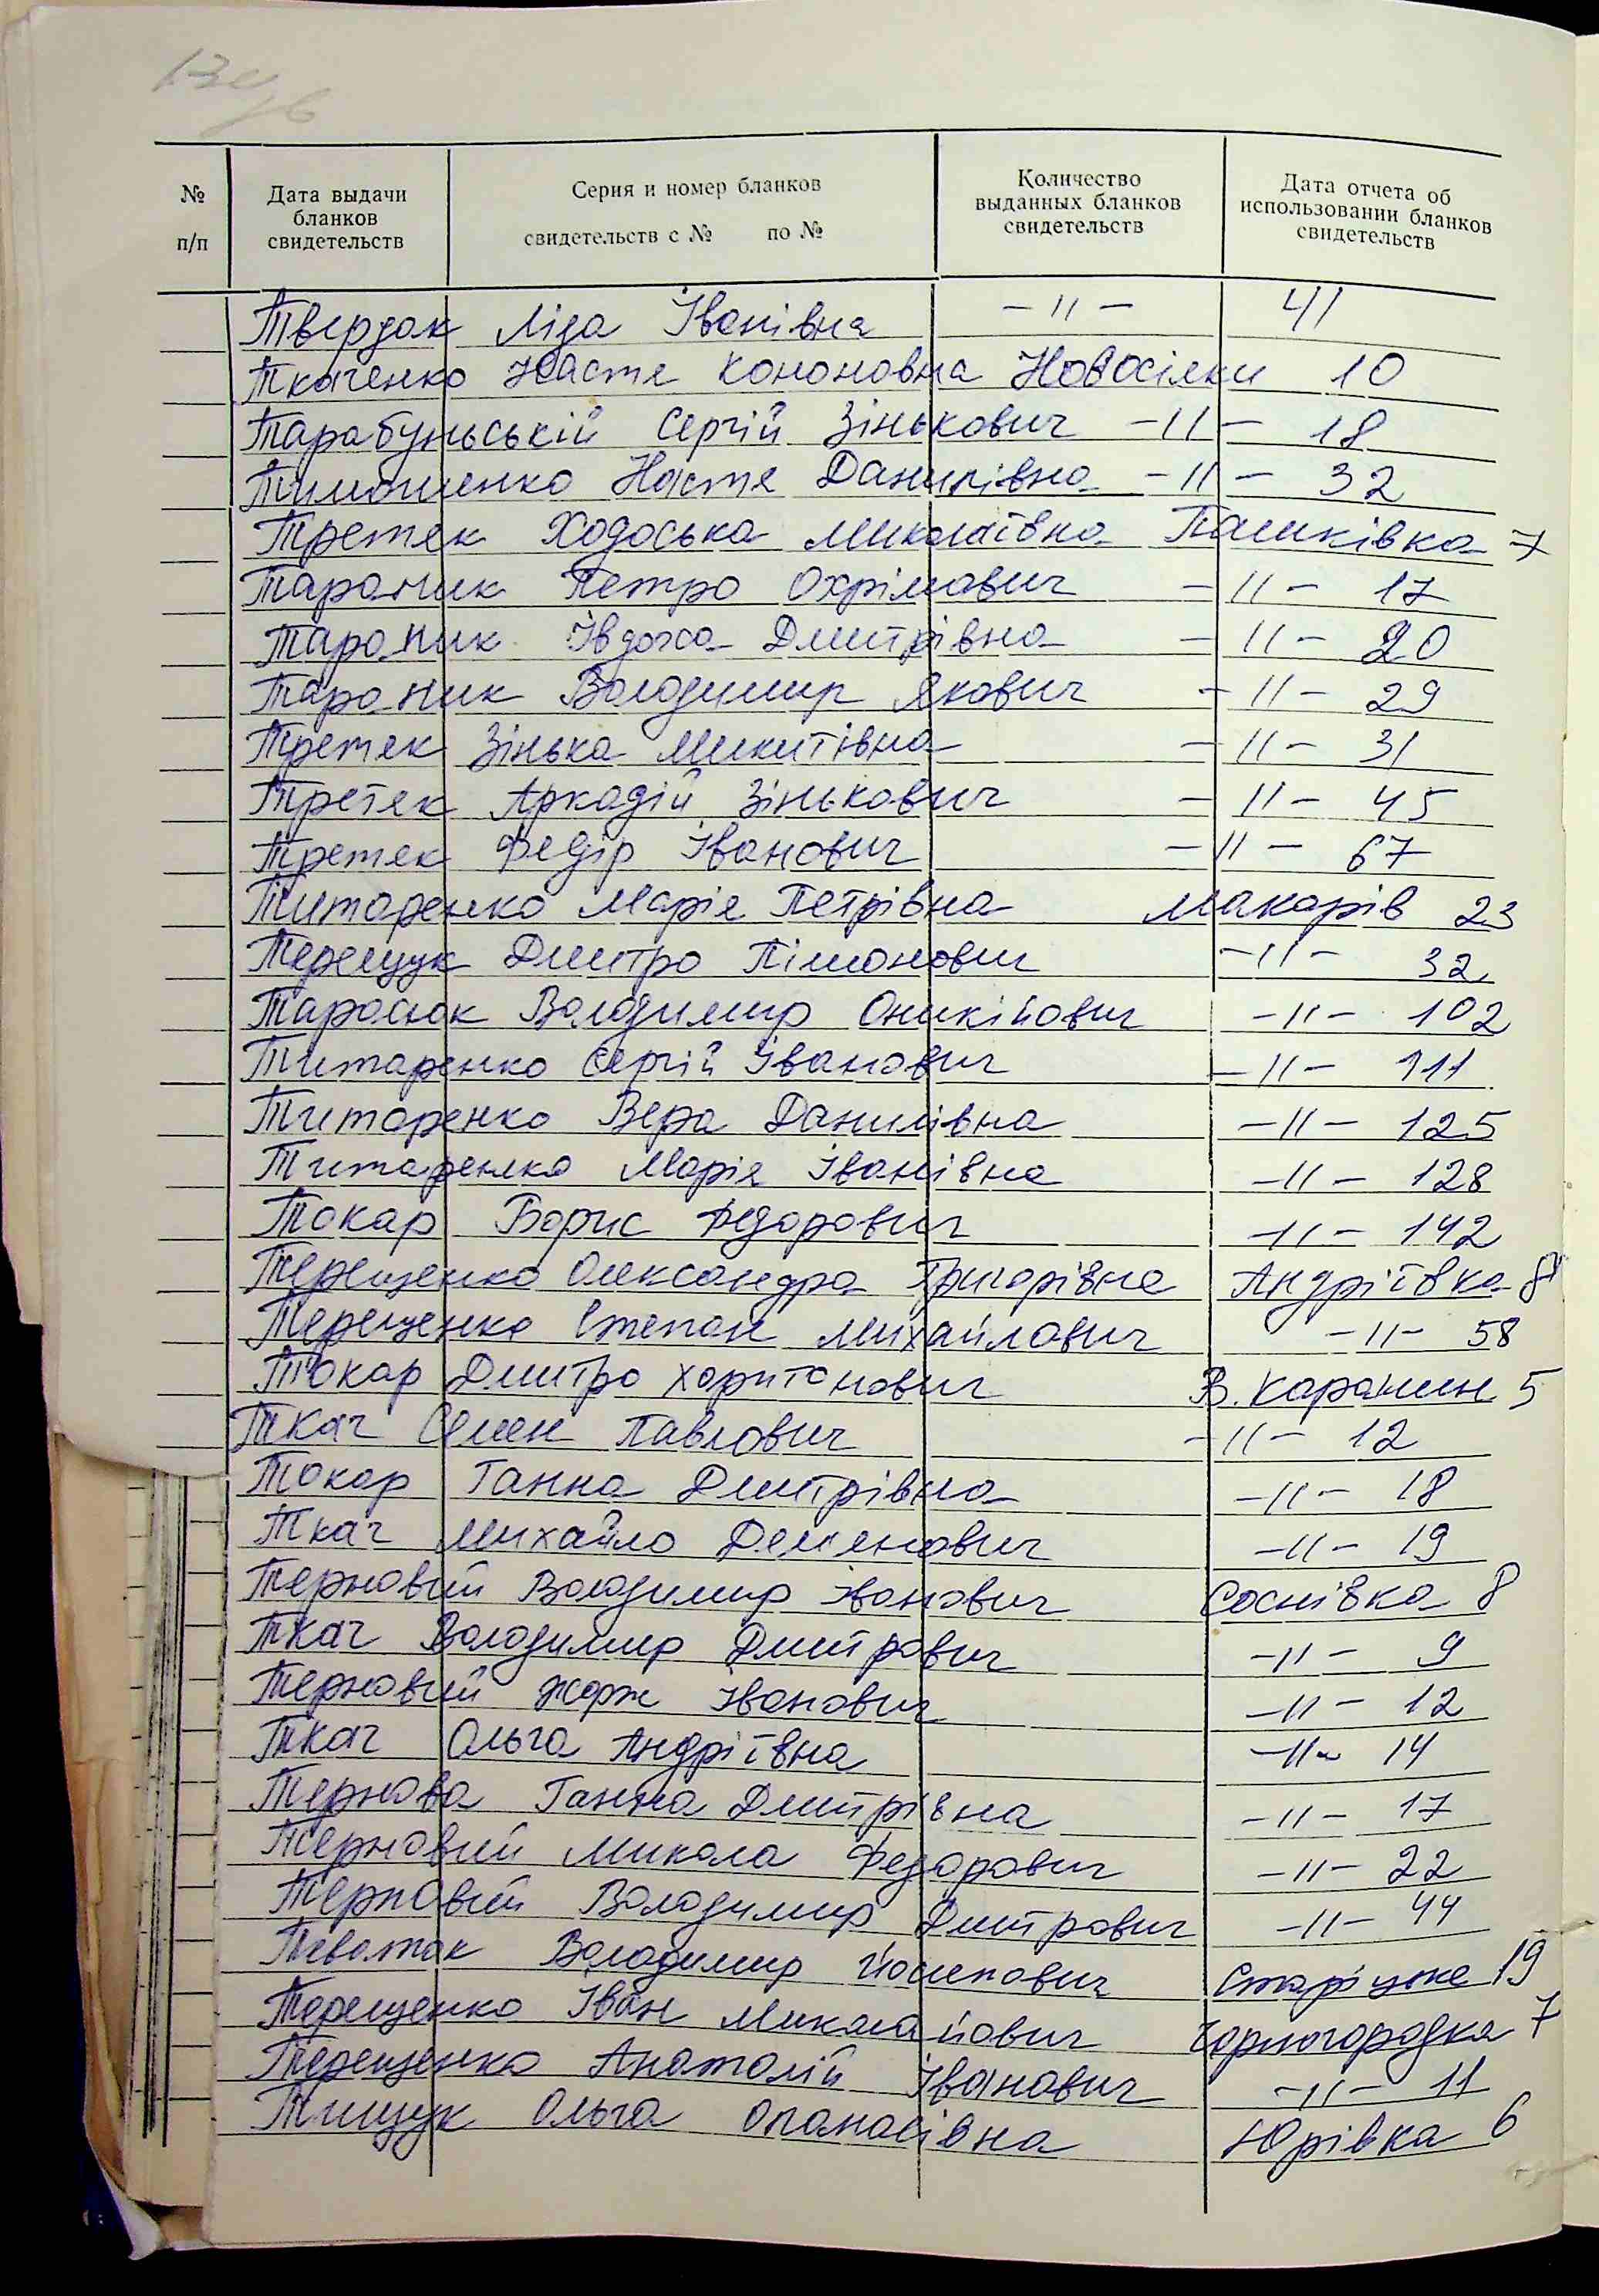 № п/п
Дата выдачи бланков свидетельств
Серия и номер бланков свидетельств с № по №
Количество выданных бланков свидетельств
Дата отчета об использовании бланков свидетельств
Твердак Ліза Іванівна -11- 41
Ткаченко Настя Кононовна Новосілки 10
Тарабуньській Сергій Зінькович -11- 18
Тимошенко Настя Данилівна -11- 32
Третяк Ходоська Миколаївна Пашківка 7
Тараник Петро Охрімович -11- 17
Тараник Івдоха Дмитрівна -11- 20
Тараник Володимир Якович -11- 29
Третяк Зінька Микитівна -11- 31
Третяк Аркадій Зінькович -11- 45
Третяк Федір Іванович -11- 67
Титаренко Марія Петрівна Макарів 23
Терещук Дмитро Пімонович -11- 32
Тарасюк Володимир Оникійович -11- 102
Титаренко Сергій Іванович -11- 111
Титаренко Вера Данилівна -11- 125
Титаренко Марія Іванівна -11- 128
Токар Борис Федорович -11- 142
Терещенко Олександра Григорівна Андріївка 8
Терещенко Степан Михайлович -11- 58
Токар Дмитро Харитонович В. Карашин 5
Ткач Семен Павлович -11- 12
Токар Ганна Дмитрівна -11- 18
Ткач Михайло Семенович -11- 19
Терновий Володимир Іванович Соснівка 8
Ткач Володимир Дмитрович -11- 9
Терновий Жорж Іванович -11- 12
Ткач Ольга Андріївна -11- 14
Тернова Ганна Дмитрівна -11- 17
Терновий Микола Федорович -11- 22
Терновий Володимир Дмитрович -11- 44
Володимир Йосипович 19
Терещенко Іван Миколайович Чорногородка 7
Терещенко Анатолій Іванович -11- 11
Тищук Ольга Опанасівна Юрівка 6